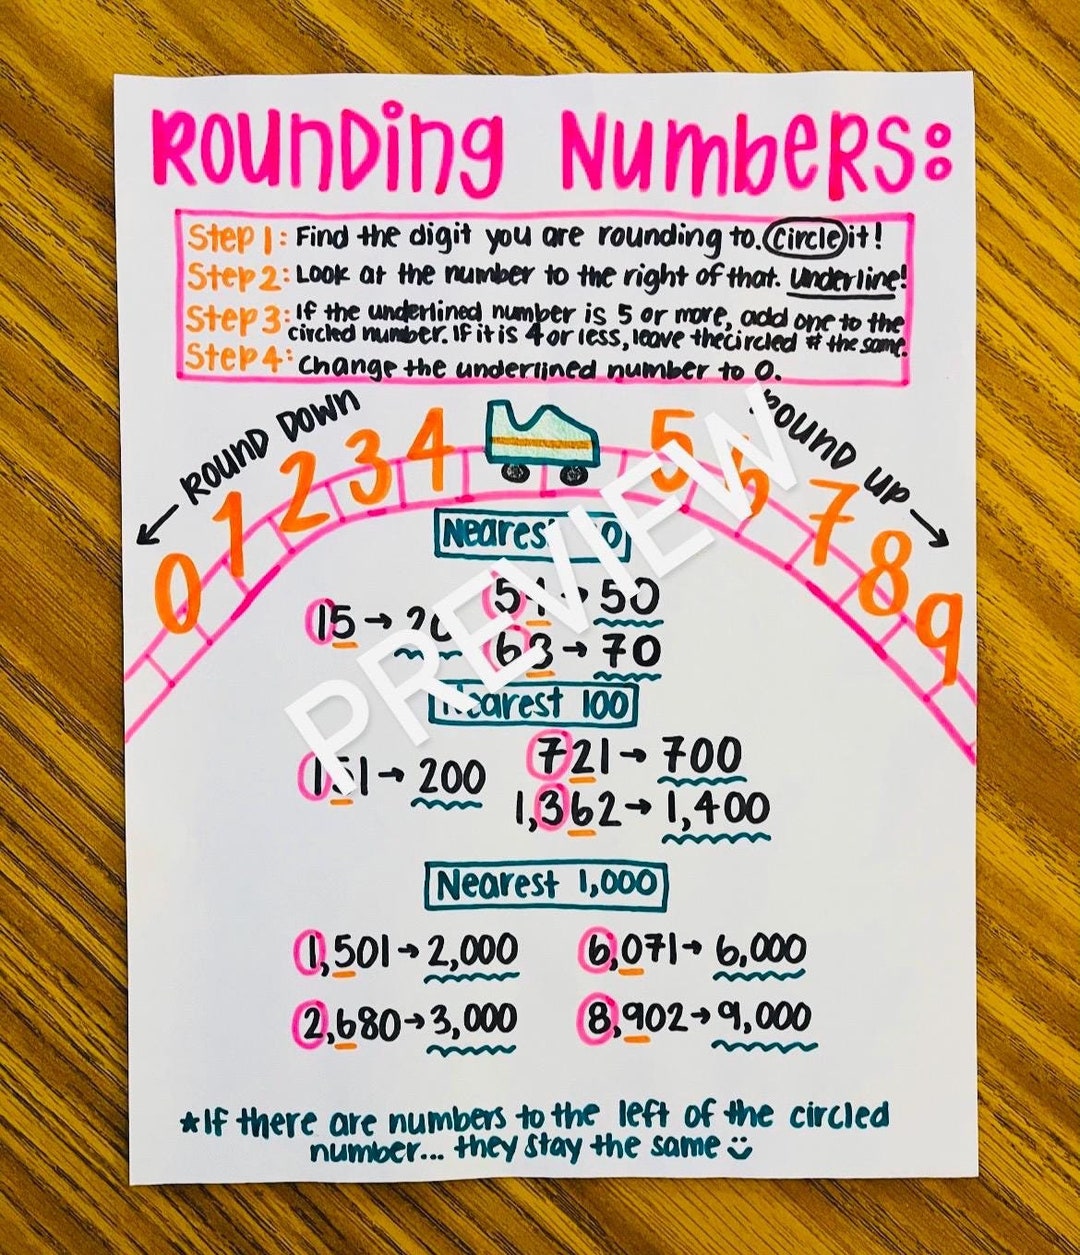 Rounding Numbers:
Step 1: Find the digit you are rounding to. Circle it!
Step 2: Look at the number to the right of that. Underline!
Step 3: If the underlined number is 5 or more, add one to the
circled number. If it is 4 or less, leave the circled # the same.
Step 4: Change the underlined number to 0.
← Round Down
Round Up →
0 1 2 3 4 5 6 7 8 9
PREVIEW
Nearest 10
15 → 20
54 → 50
68 → 70
Nearest 100
151 → 200
721 → 700
1,362 → 1,400
Nearest 1,000
1,501 → 2,000
6,071 → 6,000
2,680 → 3,000
8,902 → 9,000
*If there are numbers to the left of the circled
number... they stay the same